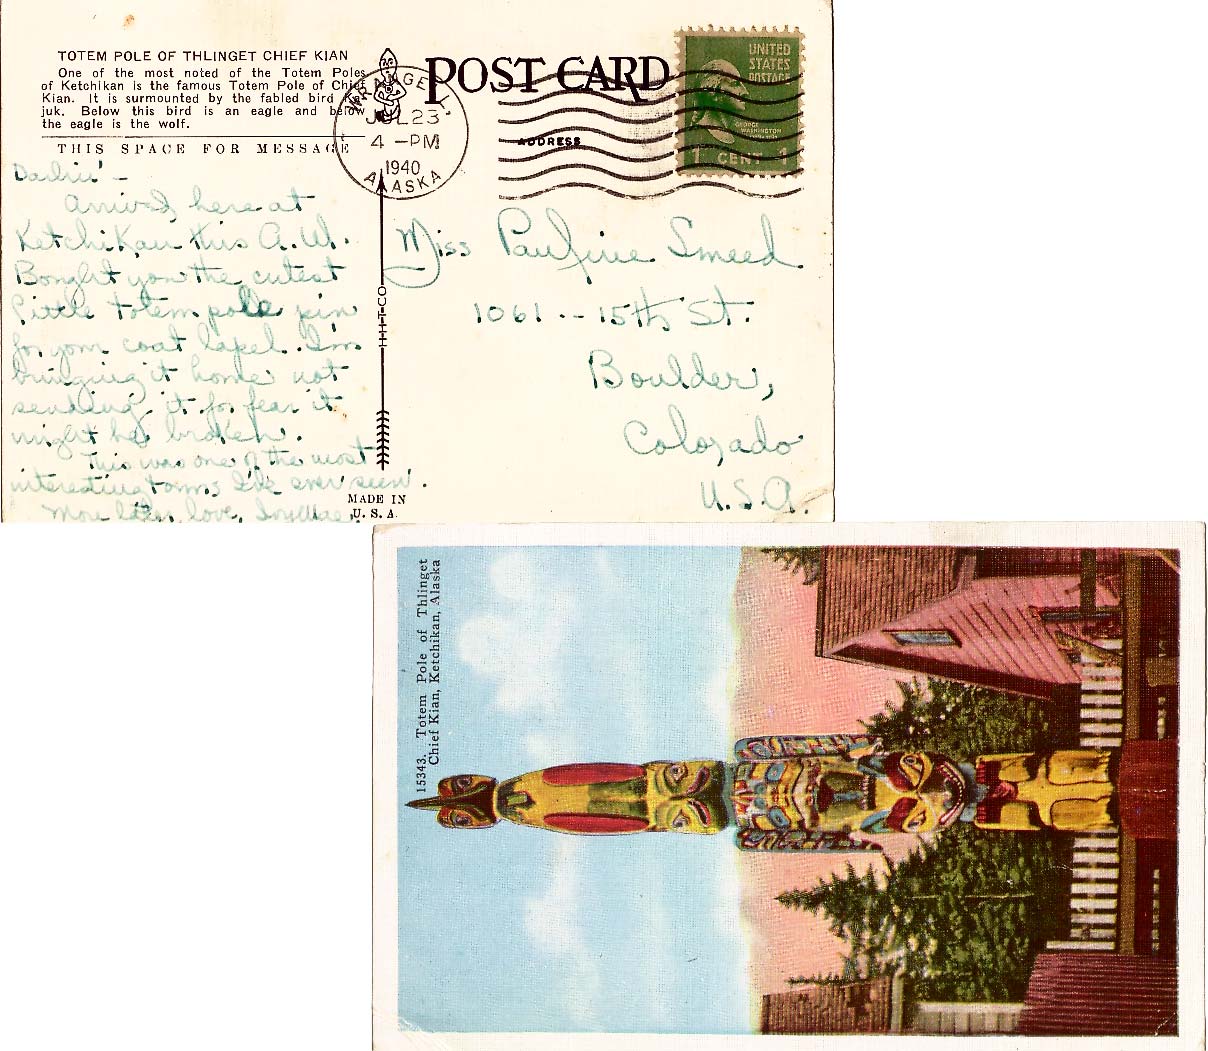 TOTEM POLE OF THLINGET CHIEF KIAN
One of the most noted of the Totem Poles
of Ketchikan is the famous Totem Pole of Chief
Kian. It is surmounted by the fabled bird
juk. Below this bird is an eagle and below
the eagle is the wolf.
THIS SPACE FOR MESSAGE
POST CARD
ADDRESS
WRANGELL,
JUL 23
4 -PM
1940
ALASKA
UNITED
STATES
POSTAGE
GEORGE
WASHINGTON
1 CENT 1
arrived here at
Ketchikan this A.M.
Bought you the cutest
little totem pole pin
for your coat lapel. I'm
bringing it home not
sending it for fear it
might be broken.
This was one of the most
interesting towns I've ever seen.
More later, love,
Miss Pauline Smeed
1061 -- 15th St.
Boulder,
Colorado
U.S.A.
MADE IN
U. S. A.
15343. Totem Pole of Thlinget
Chief Kian, Ketchikan, Alaska